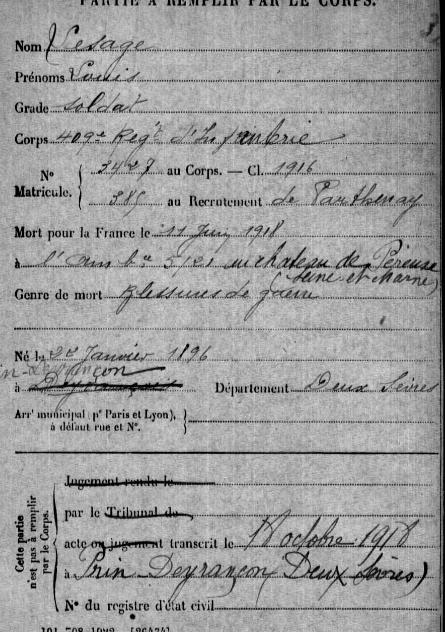 PARTIE À REMPLIR PAR LE CORPS.
Nom Lesage
Prénoms Louis
Grade soldat
Corps 409e Regt d'Infanterie
No Matricule. au Corps. — Cl. 1916
385 au Recrutement de Parthenay
Mort pour la France le 11 Juin 1918
à l'Amb ce 5/21 au chateau de Péreuse
(Seine et Marne)
Genre de mort Blessures de guerre
Né le Janvier 1896
à Deyrançon Département Deux Sèvres
Arrt municipal (pr Paris et Lyon),
à défaut rue et No.
Cette partie n'est pas à remplir par le Corps.
Jugement rendu le
par le Tribunal de
acte ou jugement transcrit le 18 octobre 1918
à Prin Deyrançon (Deux Sèvres)
No du registre d'état civil